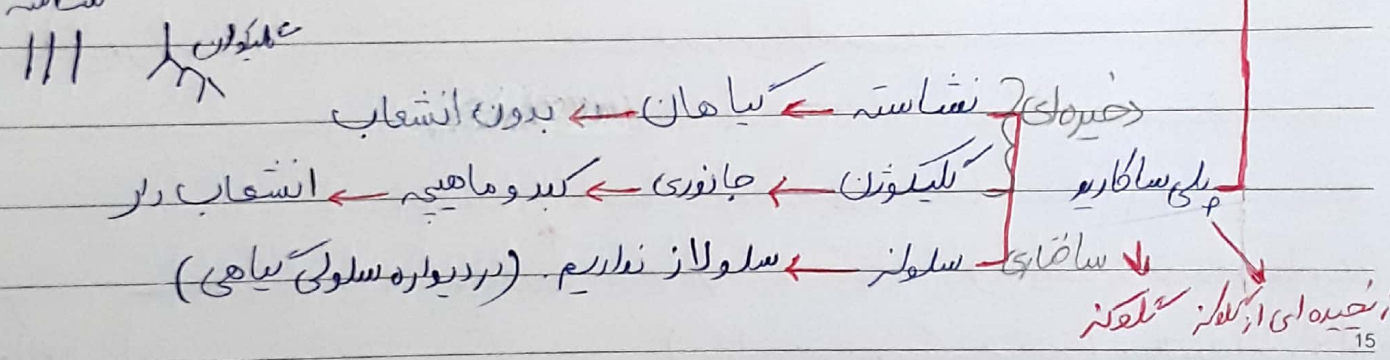 گلیکوژن
ذخیره‌ای نشاسته ← گیاهان ← بدون انشعاب
پلی ساکارید گلیکوژن ← جانوری ← کبد و ماهیچه ← انشعاب دار
ساختاری سلولز ← سلولاز نداریم. (در دیواره سلولی گیاهی)
زنجیره ای از گلوکز گلوکز
15